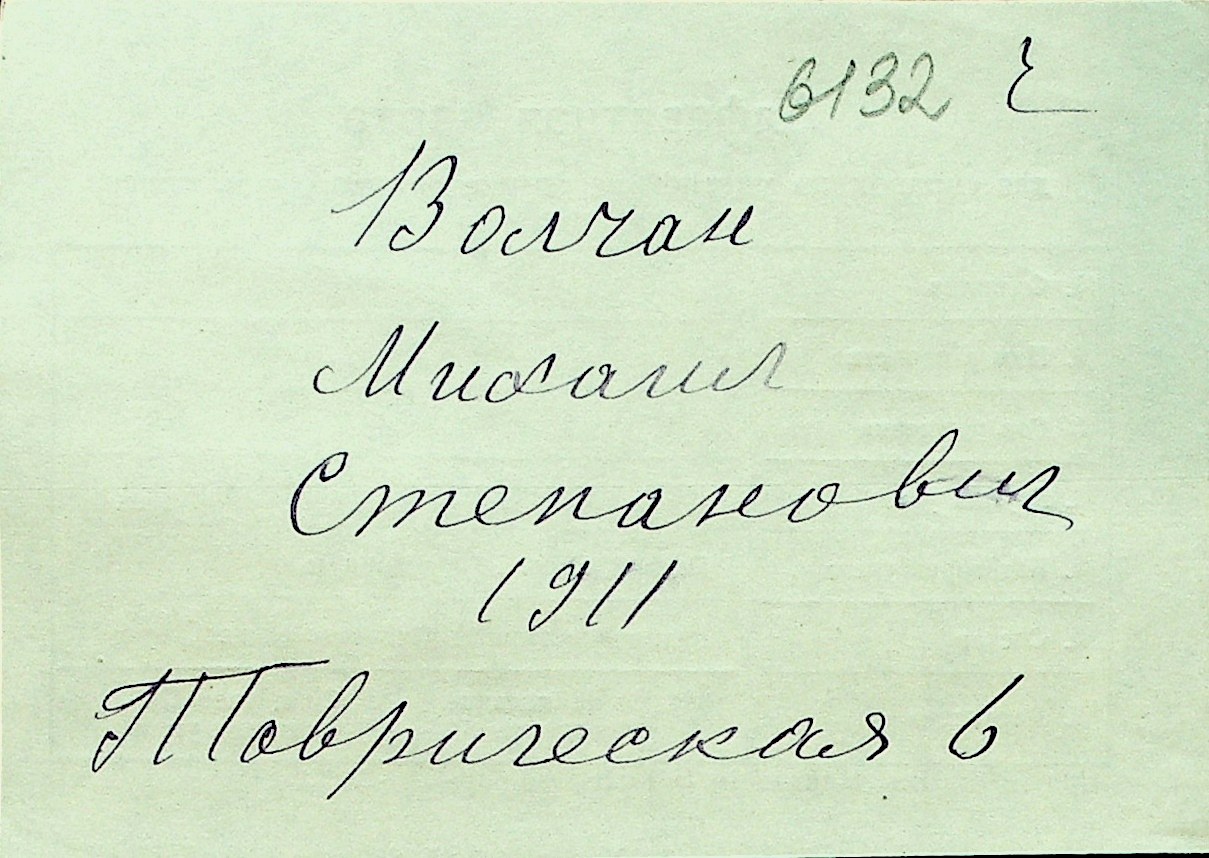 6132 ч
Волчан
Михаил
Степанович
1911
Таврическая 6